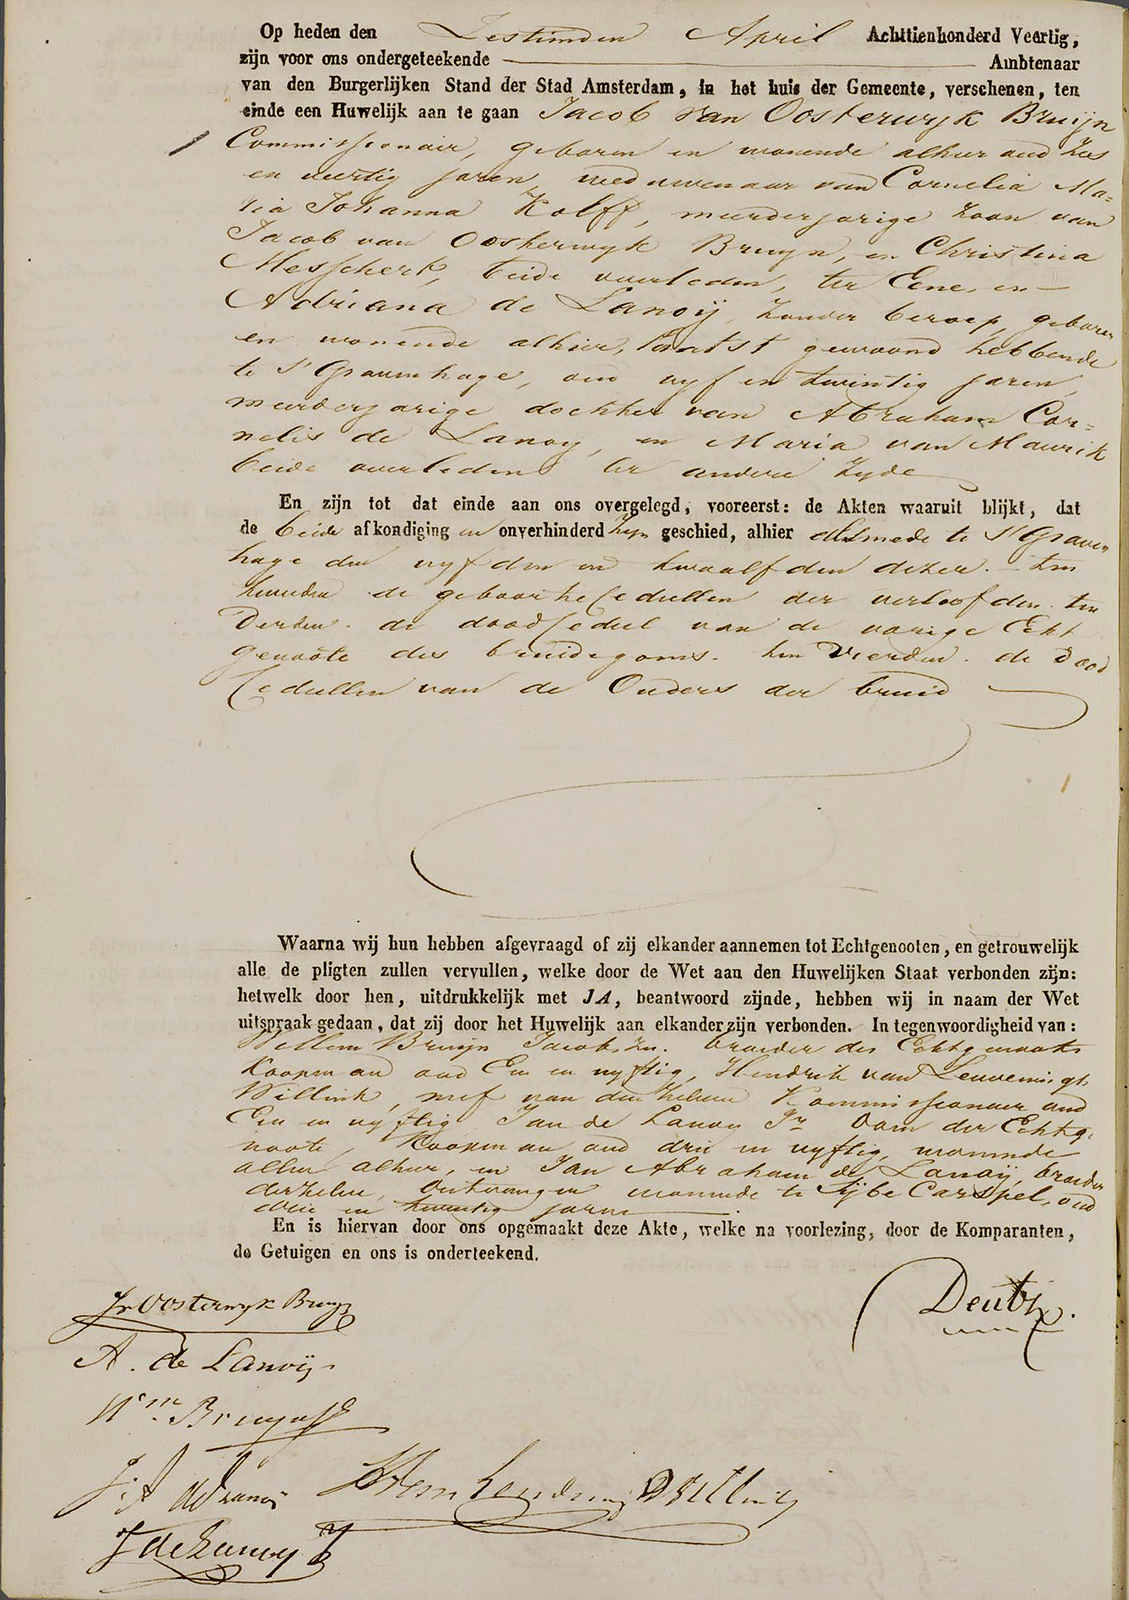 Op heden den Zestienden April Achttienhonderd Veertig,
zijn voor ons ondergeteekende Ambtenaar
van den Burgerlijken Stand der Stad Amsterdam, in het huis der Gemeente, verschenen, ten
einde een Huwelijk aan te gaan Jacob van Oosterwyk Bruijn
Commissionair, geboren en wonende alhier oud Zes
en veertig jaren, weduwenaar van Cornelia Ma=
ria Johanna Kolff, meerderjarige Zoon van
Jacob van Oosterwyk Bruyn, en Christina
Messchert, beide overleden, ter Eene, en
Adriana de Lanoij, Zonder beroep, geboren
en wonende alhier, laatst gewoond hebbende
te s'Gravenhage, oud vyf en twintig jaren,
meerderjarige dochter van Abraham Cor=
nelis de Lanoy, en Maria van Maurik
beide overleden ter andere Zyde
En zijn tot dat einde aan ons overgelegd, vooreerst: de Akten waaruit blijkt, dat
de beide afkondiging en onverhinderd zyn geschied, alhier alsmede te s'Graven
hage den vyfden en twaalfden dezer. ten
tweeden de geboorte Cedullen der verloofden. ten
Derden. de dood Cedul van de vorige Echt
genoote des bruidegoms. ten Vierden. de Dood
Cedullen van de Ouders der bruid
Waarna wij hun hebben afgevraagd of zij elkander aannemen tot Echtgenooten, en getrouwelijk
alle de pligten zullen vervullen, welke door de Wet aan den Huwelijken Staat verbonden zijn:
hetwelk door hen, uitdrukkelijk met JA, beantwoord zijnde, hebben wij in naam der Wet
uitspraak gedaan, dat zij door het Huwelijk aan elkander zijn verbonden. In tegenwoordigheid van:
Willem Bruijn Jacob.Zn. broeder des Echtgenoots
Koopman oud Een en vyftig, Hendrik van Leuveningh
Willink, neef van den Zelven Kommissionair oud
Een en vyftig Jan de Lanoy Jr. Oom der Echtge
noote, Koopman oud drie en vyftig, wonende
allen alhier, en Jan Abraham de Lanoij, broeder
derzelve, Ontvanger wonende te Sijbe Carspel, oud
drie en twintig jaren
En is hiervan door ons opgemaakt deze Akte, welke na voorlezing, door de Komparanten,
de Getuigen en ons is onderteekend.
Jv Oosterwyk Bruyn
Deutz
A. de Lanoij
Wm. Bruyn
J. A de Lanoij
Willink
J de Lanoy Jr